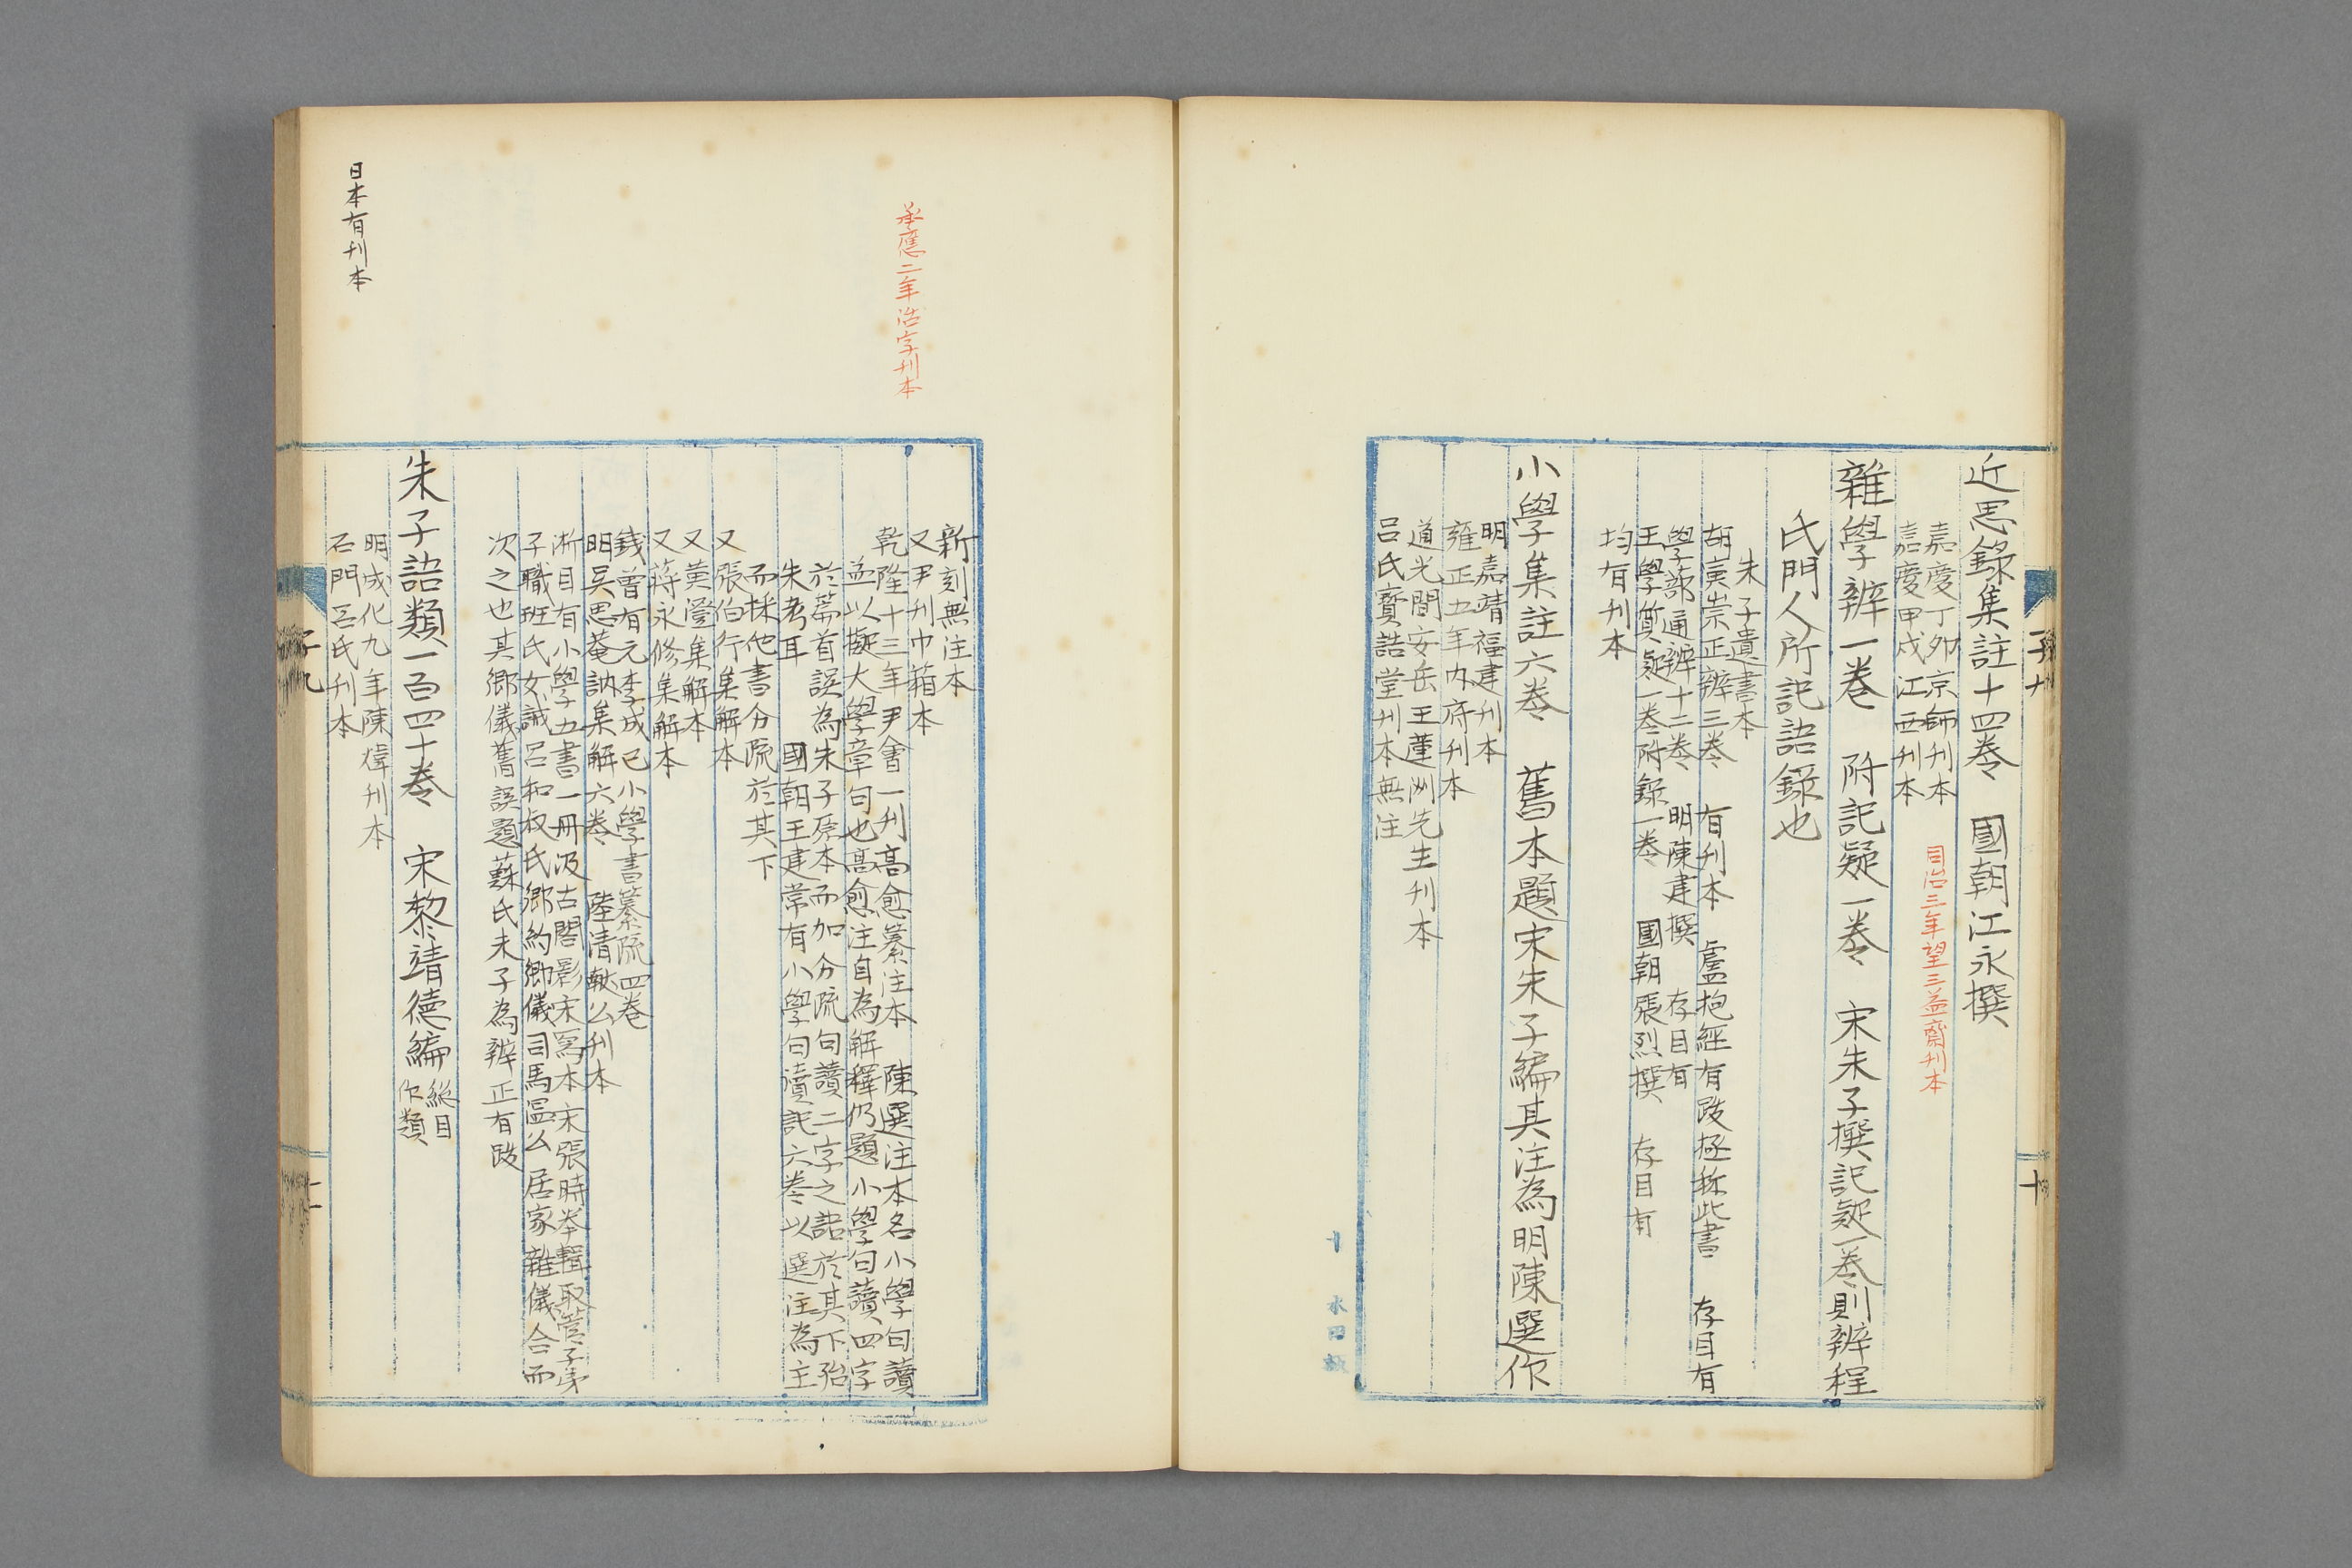 近思錄集註十四卷　國朝江永撰
嘉慶丁夘京師刊本
嘉慶甲戌江西刊本
同治三年望三益齋刊本
雜學辨一卷　附記疑一卷　宋朱子撰記疑一卷則辨程
氏門人所記語錄也
朱子遺書本
胡寅崇正辨三卷　有刊本　盧抱經有跋極称此書　存目有
學蔀通辨十二卷　明陳建撰　存目有
王學質疑一卷附錄一卷　國朝張烈撰　存目有
均有刊本
小學集註六卷　舊本題宋朱子編其注為明陳選作
明嘉靖福建刊本
雍正五年内府刊本
道光間安岳王蓮洲先生刊本
呂氏寶誥堂刊本無注
子九
十
新刻無注本
又尹刊巾箱本
乾隆十三年尹會一刊高愈纂注本　陳選注本名小學句讀
盖以擬大學章句也高愈注自為解釋仍題小學句讀四字
於篇首誤為朱子原本而加分疏句讀二字之詁於其下殆
朱考耳　國朝王建常有小學句讀記六卷以選注為主
而採他書分疏於其下
又張伯行集解本
又黃澄集解本
又蔣永修集解本
錢曾有元李成己小學書纂疏四卷
明吳思菴訥集解六卷　陸清献公刊本
淅目有小學五書一冊汲古閣影宋寫本宋張時举輯取管子弟
子職班氏女誡呂和叔氏鄉約鄉儀司馬温公居家雜儀合而
次之也其鄉儀舊誤題蘇氏朱子為辨正有跋
朱子語類一百四十卷　宋黎靖德編
總目
作類
明成化九年陳煒刊本
石門呂氏刊本
承應二年活字刊本
日本有刊本
子九